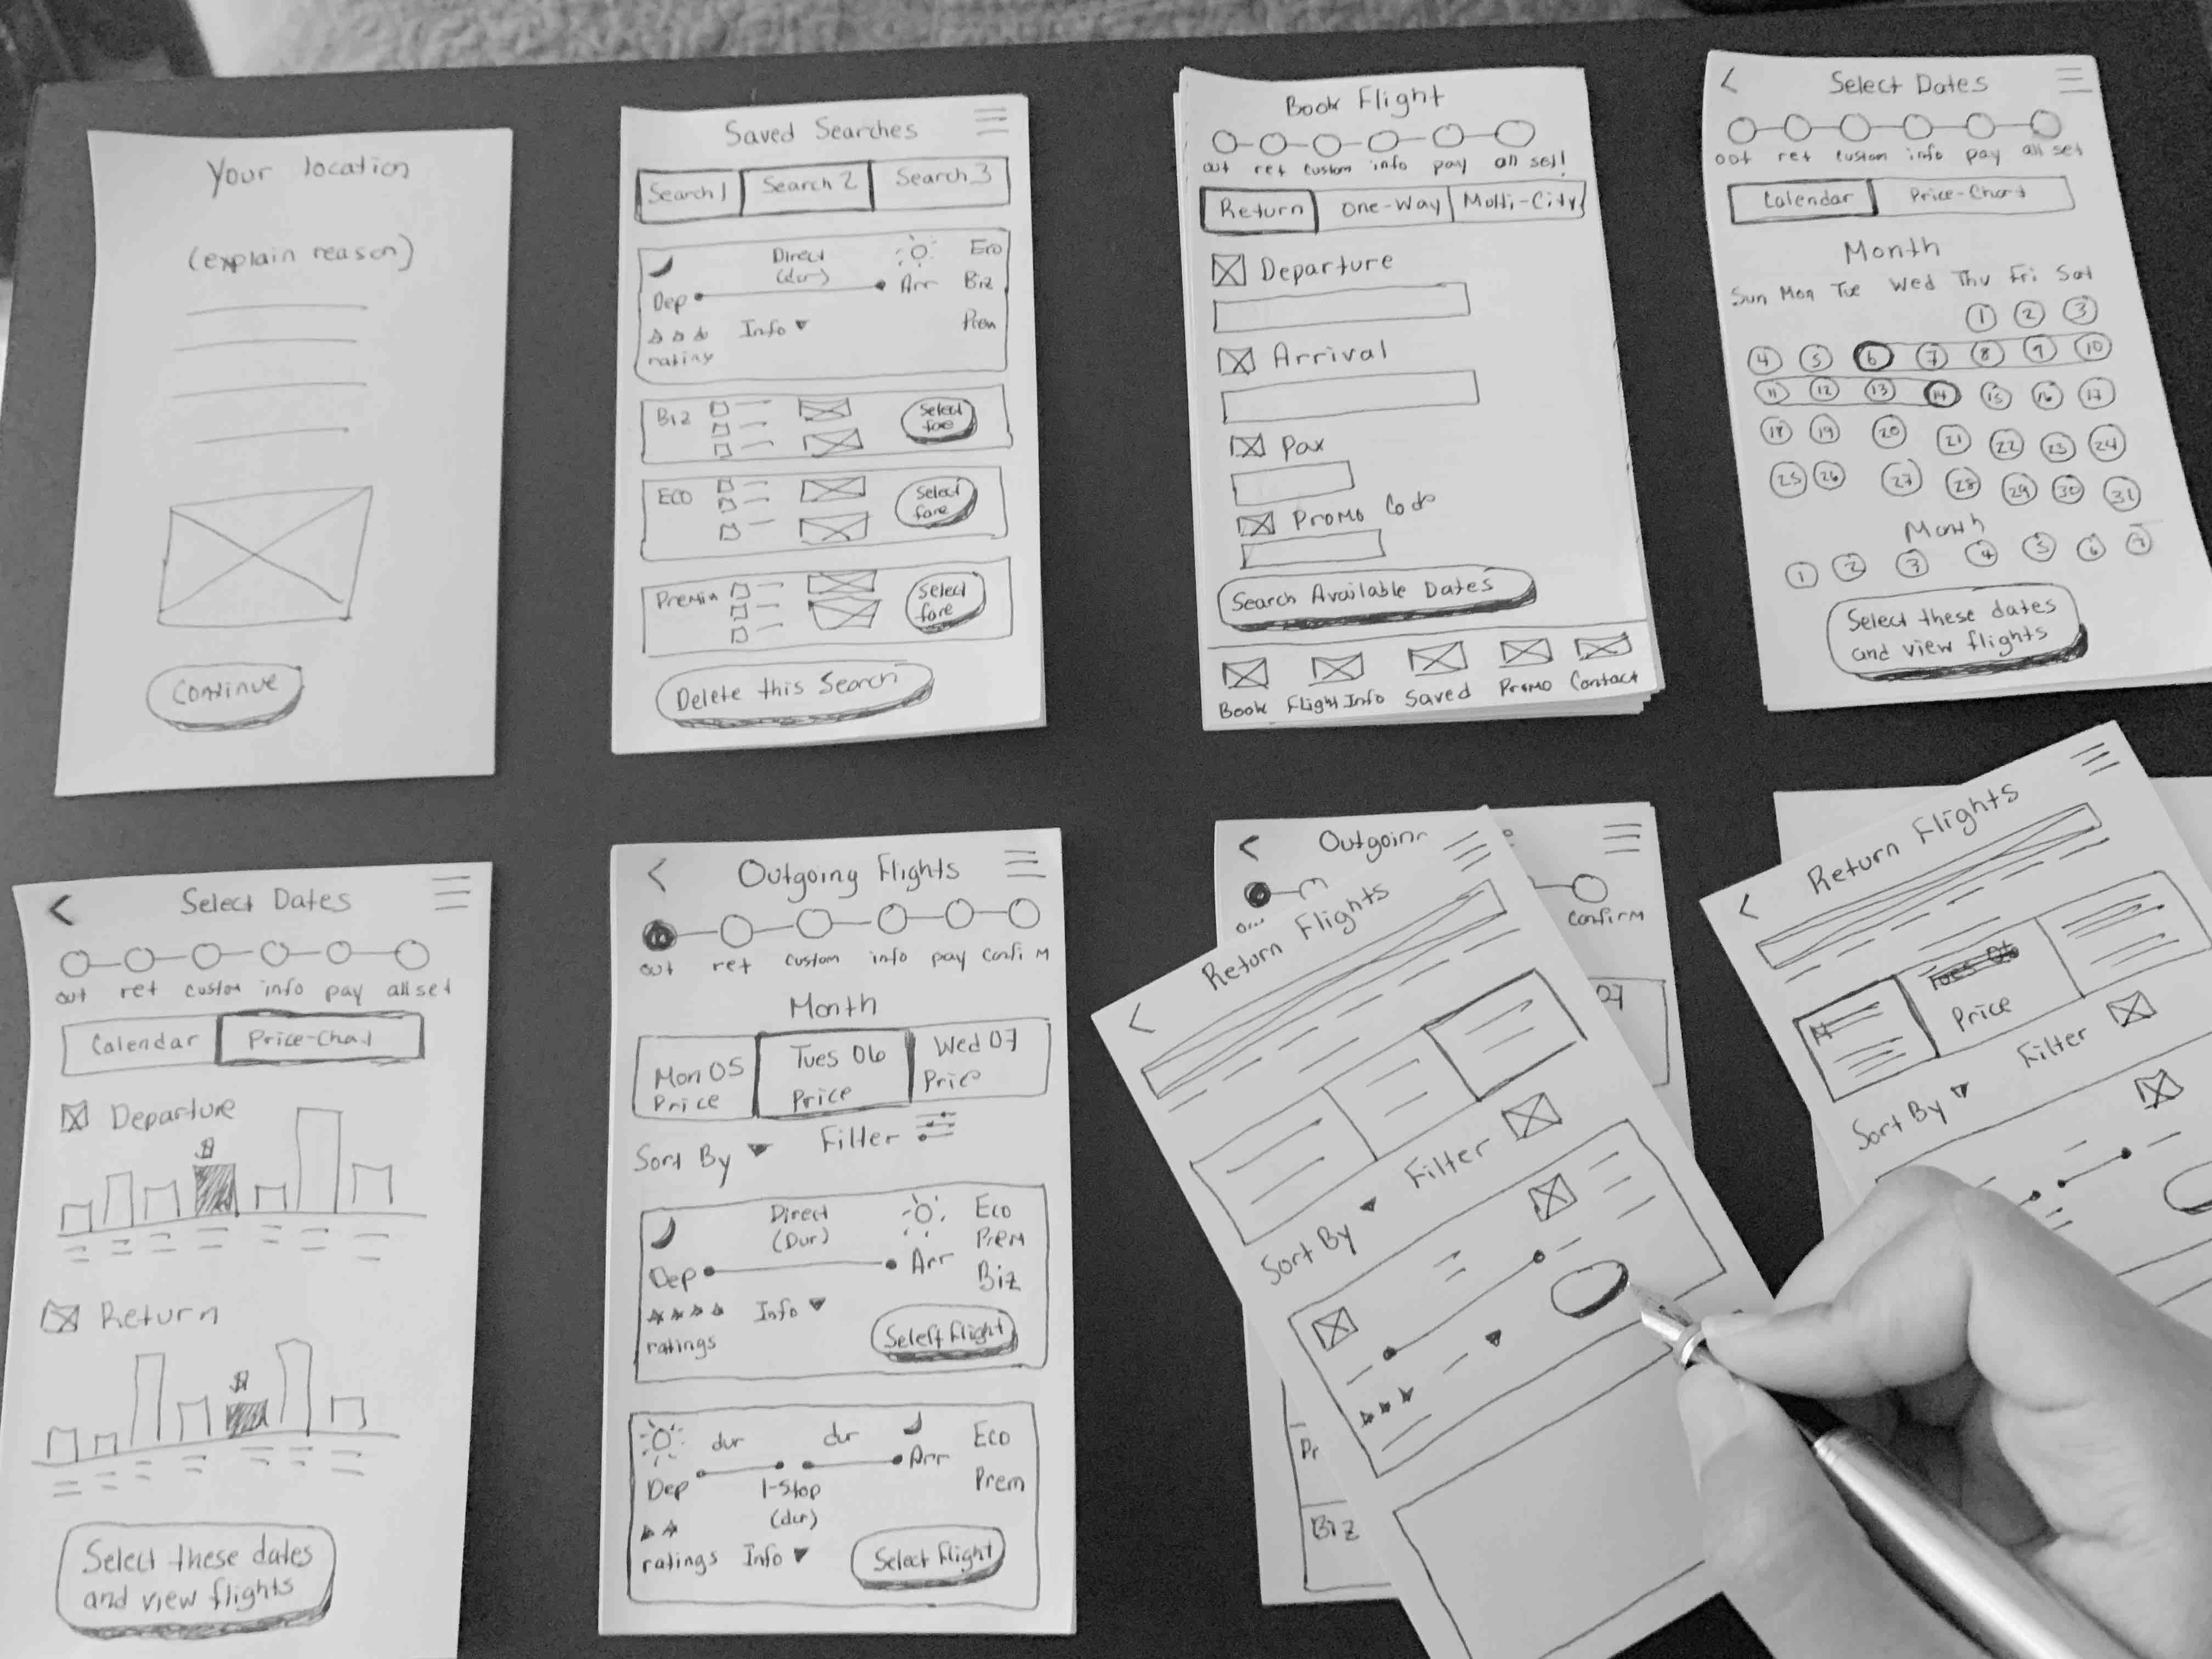 Your location
(explain reason)
Continue
Saved Searches
Search 1 Search 2 Search 3
Direct Eco
(dur)
Dep Arr Biz
Info Prem
rating
Biz Select fare
ECO Select fare
Premiu Select fare
Delete this Search
Book Flight
out ret custom info pay all set!
Return One-Way Multi-City
Departure
Arrival
Pax
Promo Code
Search Available Dates
Book Flight Info Saved Promo Contact
Select Dates
out ret custom info pay all set
Calendar Price-Chart
Month
Sun Mon Tue Wed Thu Fri Sat
1 2 3
4 5 6 7 8 9 10
11 12 13 14 15 16 17
18 19 20 21 22 23 24
25 26 27 28 29 30 31
Month
1 2 3 4 5 6 7
Select these dates
and view flights
Select Dates
out ret custom info pay all set
Calendar Price-Chart
Departure
$
Return
$
Select these dates
and view flights
Outgoing Flights
out ret custom info pay Confirm
Month
Mon 05 Tues 06 Wed 07
Price Price Price
Sort By Filter
Direct Eco
(Dur) Prem
Dep Arr Biz
Info
ratings Select Flight
dur dur Eco
Dep 1-Stop Arr Prem
(dur)
ratings Info Select Flight
Outgoin
Confirm
07
Pr
Biz
Return Flights
Sort By Filter
Return Flights
Tues 06
Price
Sort By Filter